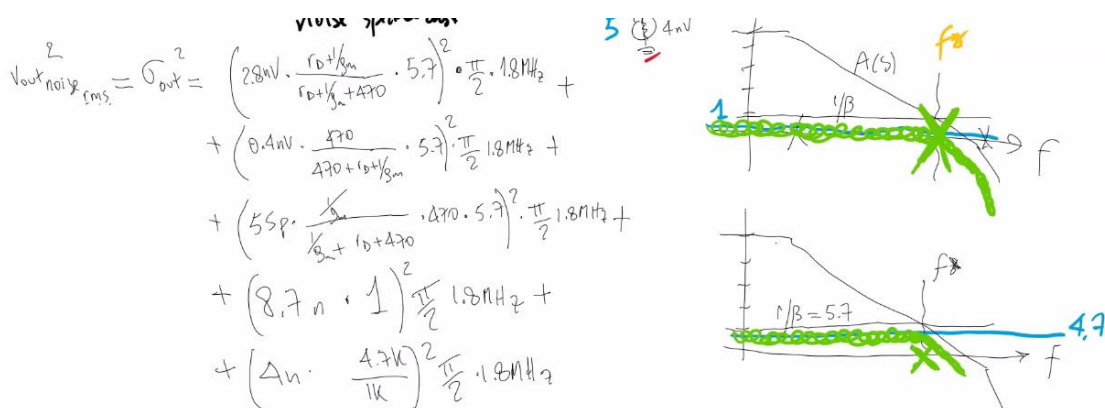 5 4nV
Vout noise rms ² = σout² = (2.8nV · (rD+1/gm)/(rD+1/gm+470) · 5.7)² · π/2 · 1.8MHz +
+ (0.4nV · 470/(470+rD+1/gm) · 5.7)² · π/2 1.8MHz +
+ (55p · (1/gm)/(1/gm+rD+470) · 470 · 5.7)² · π/2 1.8MHz +
+ (8.7n · 1)² π/2 1.8MHz +
+ (4n · 4.7K/1K)² π/2 · 1.8MHz
A(s)
1/β
1
f
1/β = 5.7
4.7
f